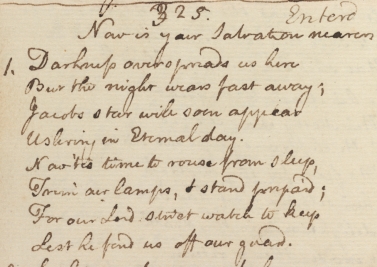 325. Enterd
Now is your Salvation nearer
1. Darkness overspreads us here
But the night wears fast away;
Jacobs star will soon appear
Ushring in Eternal day.
Now tis time to rouse from sleep,
Trim our lamps, & stand prepaid;
For our Lord strict watch to keep
Lest he find us off our guard.